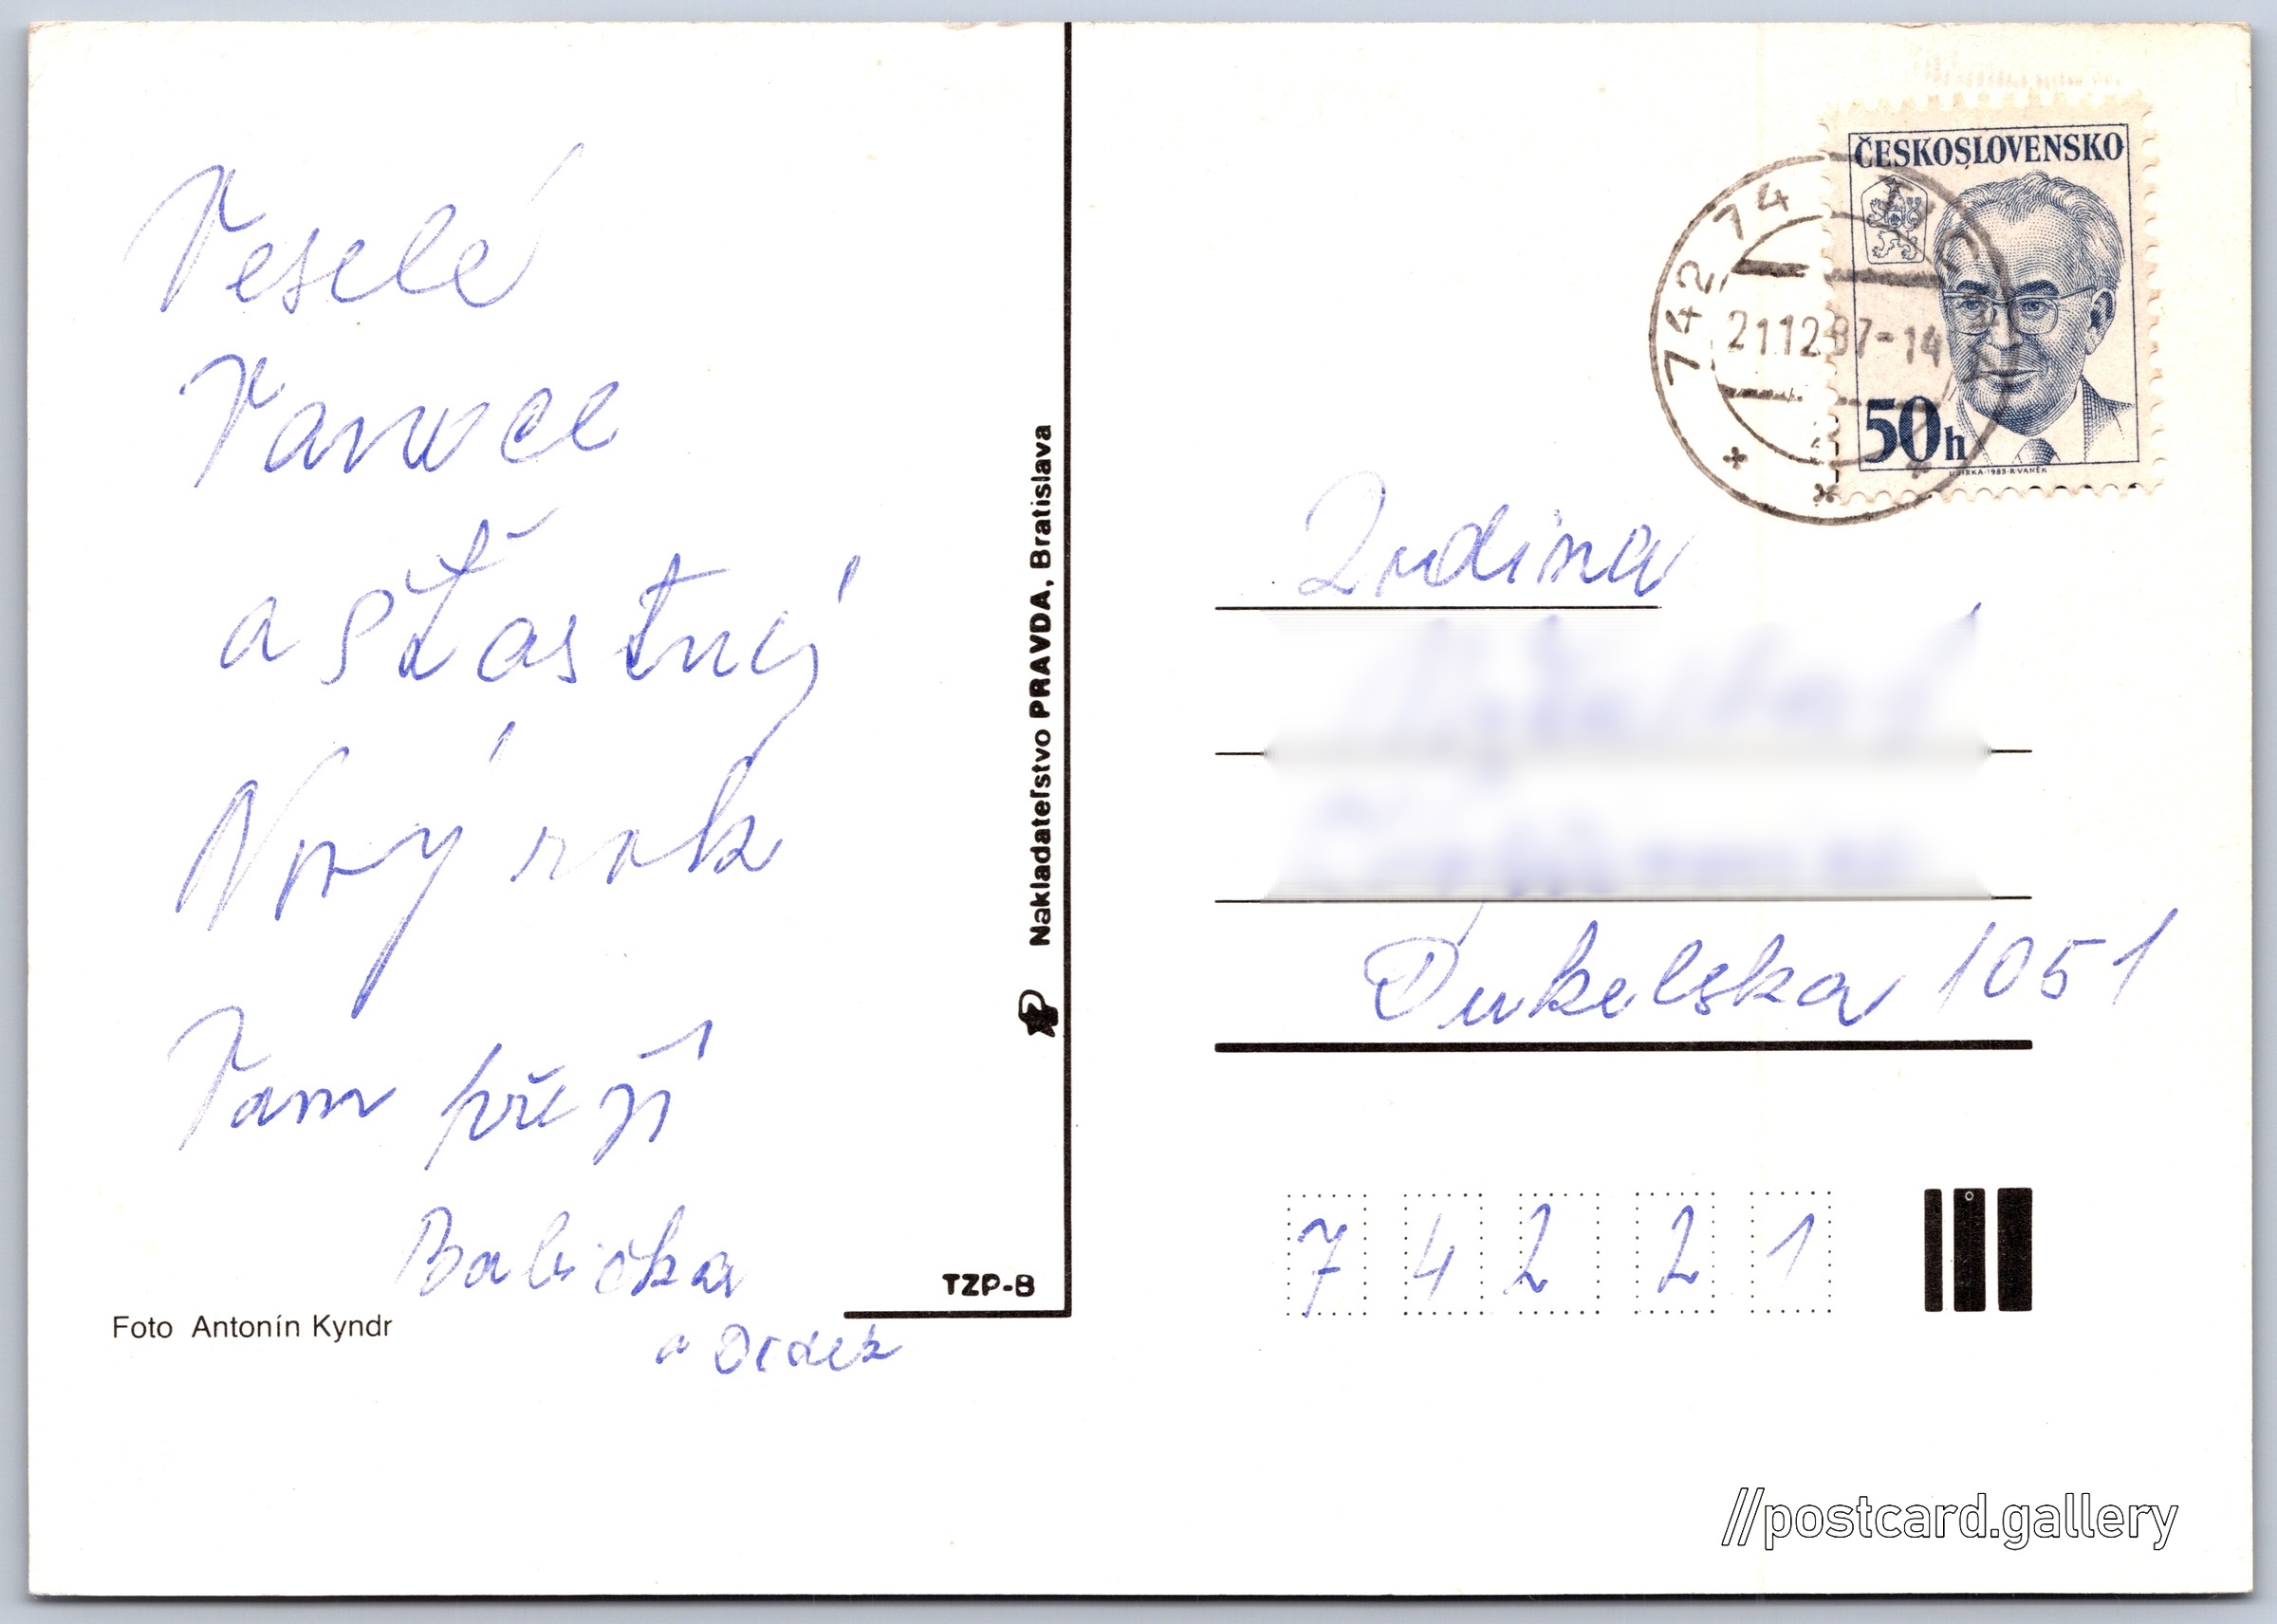 Veselé
Vanoce
a šťastný
Nový rok
Vam přejí
Babička
a Dědek
Foto Antonín Kyndr
TZP-B
Nakladateľstvo PRAVDA, Bratislava
ČESKOSLOVENSKO
50h
J.ŠIRKA·1983·R.VANĚK
742 74
21.12.87-14
Rodina
Dukelska 1051
742 21
//postcard.gallery